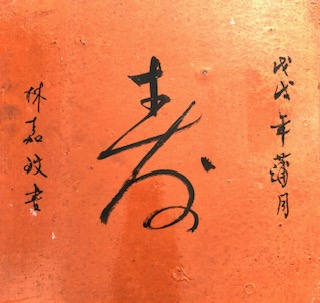 戊戌年蒲月
寿
林嘉玟書